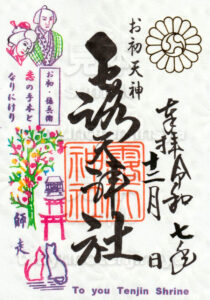 奉拝 令和七年
十二月 日
お初天神
露天神社
お初・徳兵衛
恋の手本と
なりにけり
師走
To you Tenjin Shrine